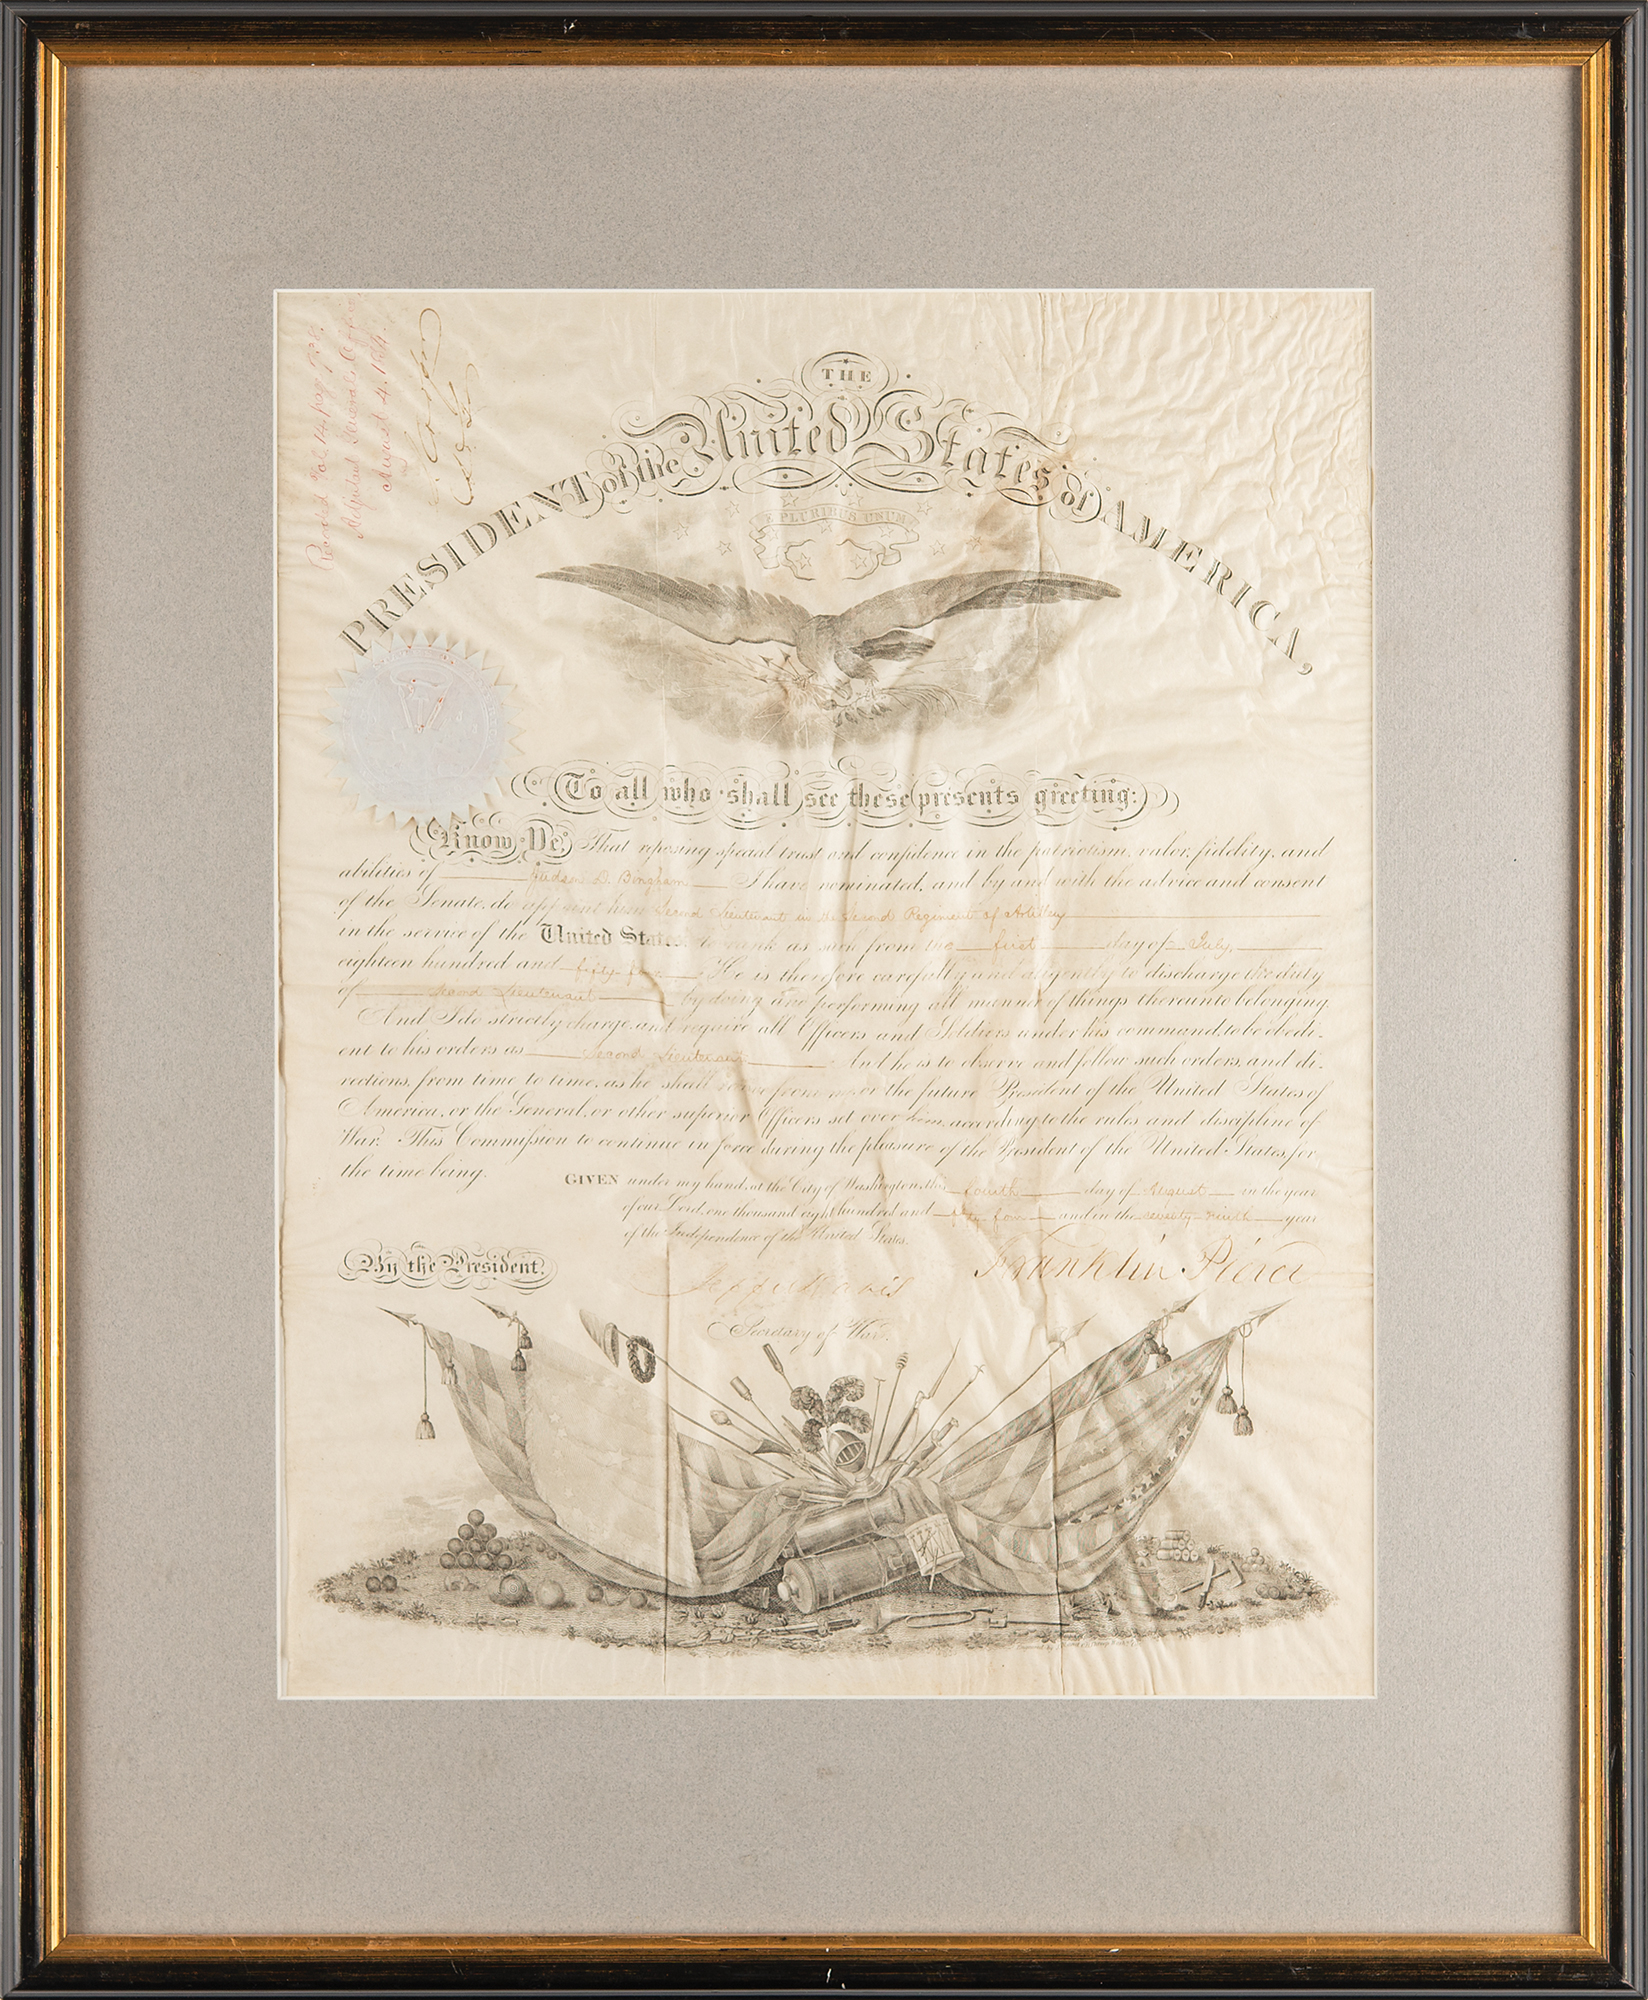 Recorded Vol. 14, page 238.
Adjutant General's Office
August 4. 1854.
THE
PRESIDENT of the United States of AMERICA,
E PLURIBUS UNUM
To all who shall see these presents greeting:
Know Ye, That reposing special trust and confidence in the patriotism, valor, fidelity, and
abilities of Judson D. Bingham I have nominated, and by and with the advice and consent
of the Senate, do appoint him Second Lieutenant in the Second Regiment of Artillery
in the service of the United States: to rank as such from the first day of July,
eighteen hundred and fifty four. He is therefore carefully and diligently to discharge the duty
of Second Lieutenant by doing and performing all manner of things thereunto belonging.
And I do strictly charge, and require all Officers and Soldiers under his command, to be obedi-
ent to his orders as Second Lieutenant And he is to observe and follow such orders, and di-
rections, from time to time, as he shall receive from me, or the future President of the United States of
America, or the General, or other superior Officers set over him, according to the rules and discipline of
War. This Commission to continue in force during the pleasure of the President of the United States, for
the time being.
GIVEN under my hand, at the City of Washington, this fourth day of August in the year
of our Lord, one thousand eight hundred and fifty four and in the seventy ninth year
of the Independence of the United States.
Franklin Pierce
By the President.
Jeffn Davis
Secretary of War.